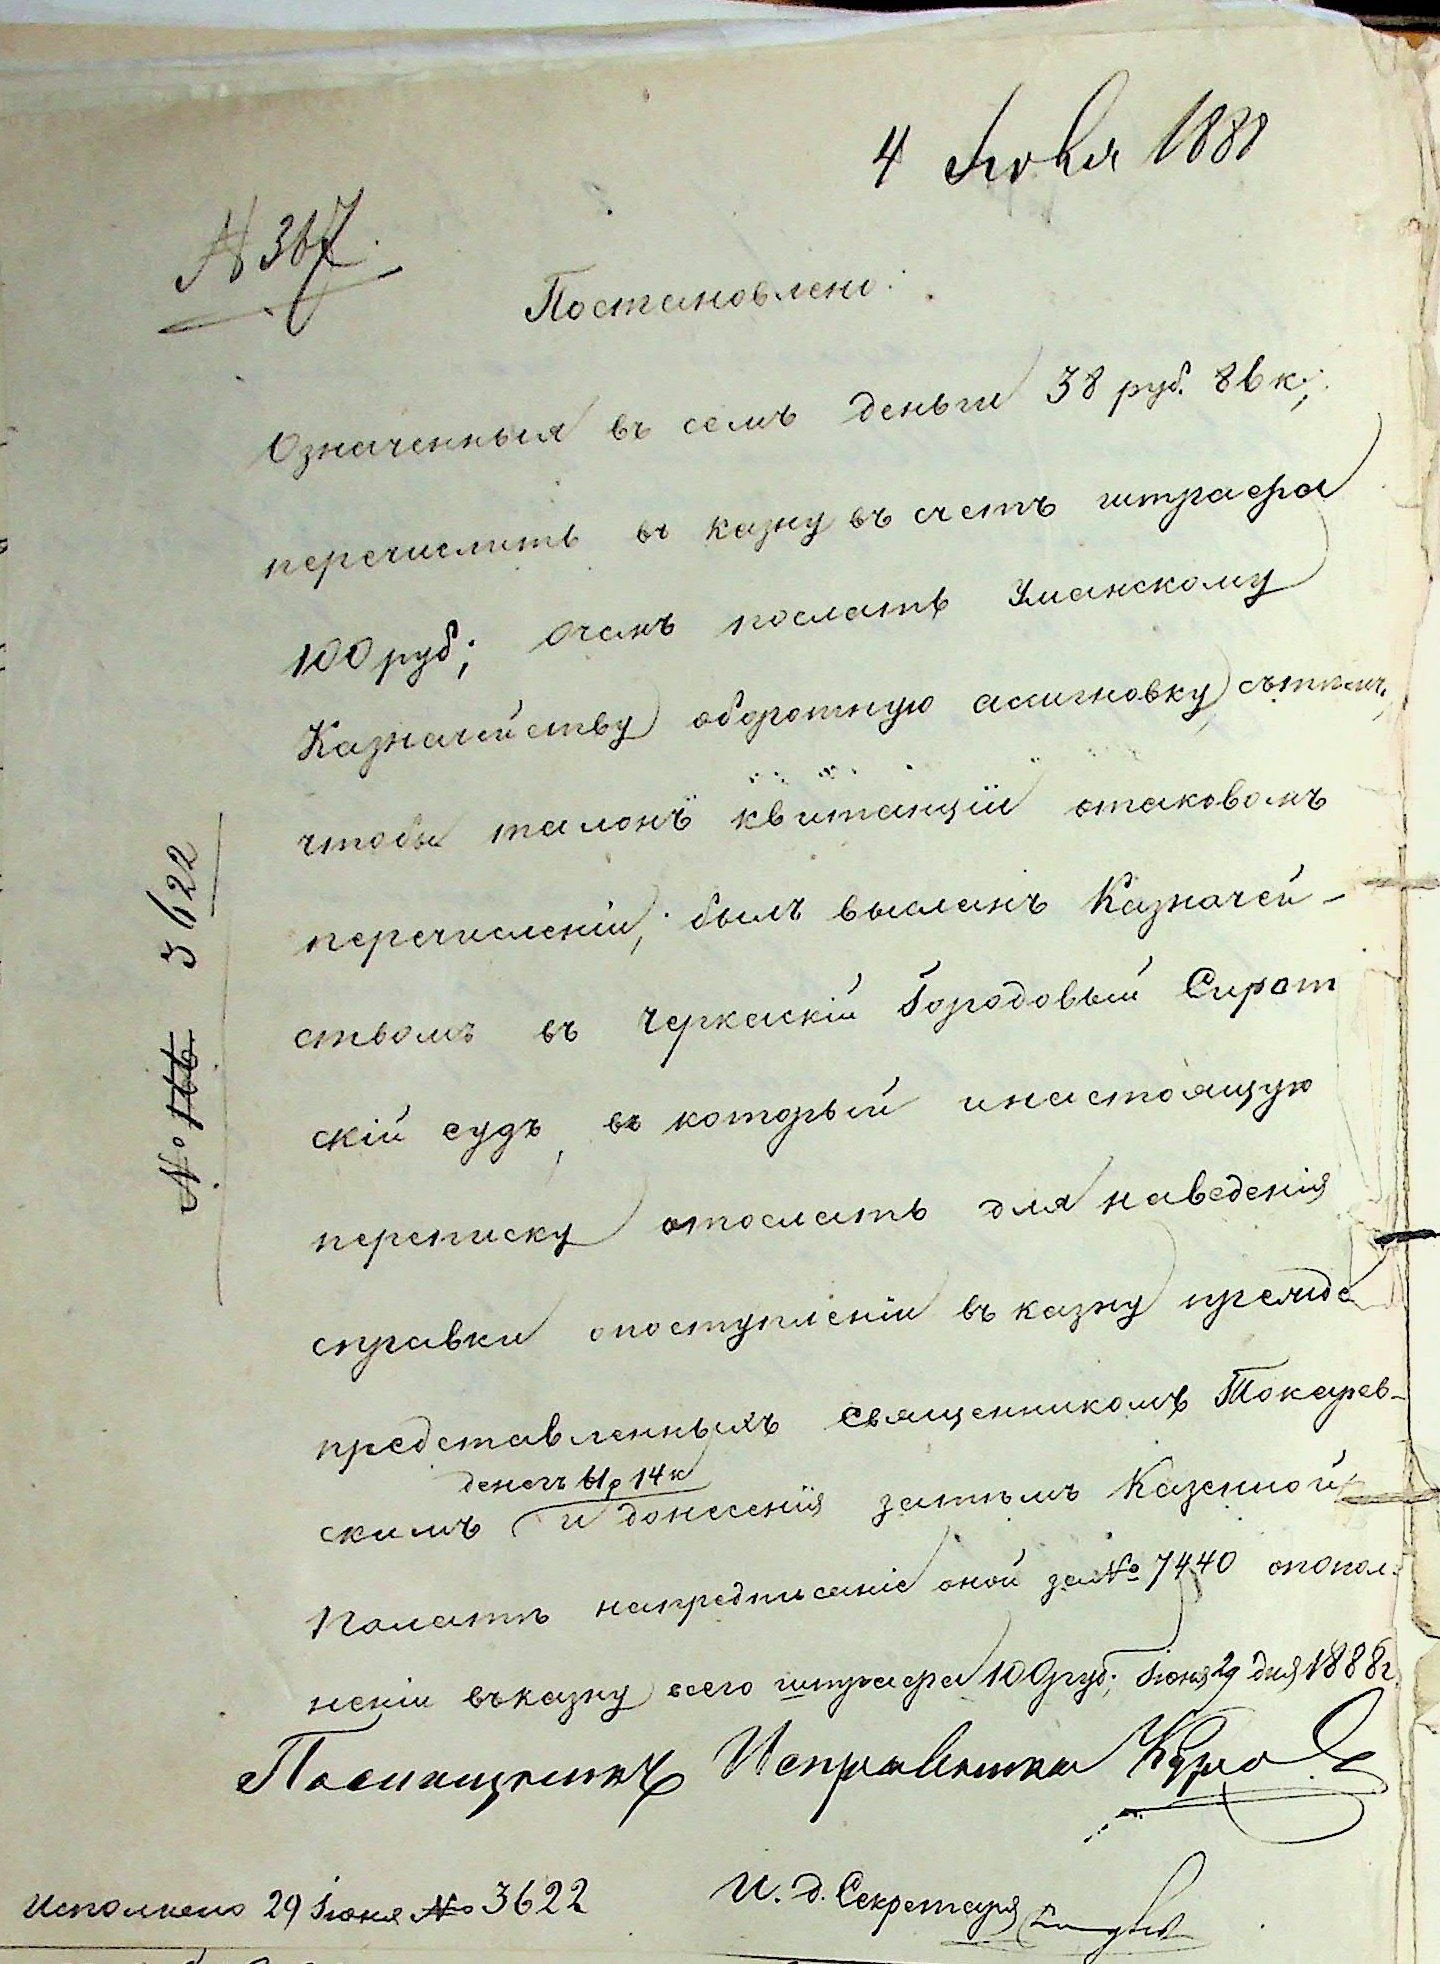 4 Июня 1888
№ 367
Постановлено:
Означенныя въ семъ деньги 38 руб. 86 к.,
перечислить въ казну въ счетъ штрафа
100 руб; очемъ послать Уманскому
Казначейству оборотную асигновку, сътемъ,
чтобы талонъ квитанціи отаковомъ
перечисленіи, былъ высланъ Казначей-
ствомъ въ Черкаскій Городовый Сирот
скій судъ, въ который инастоящую
переписку отослать для наведенія
справки опоступленіи въ казну прежде
представленныхъ священникомъ Токарев-
денегъ 61 р 14 к
скимъ и донесенія затѣмъ Казенной
Палатѣ напредписаніе оной за № 7440 опопол-
неніи въказну всего штрафа 100 руб; Іюня 29 дня 1888 г.
Помощникъ Исправника
И. д. Секретаря
Исполнено 29 Іюня № 3622
№ 3622